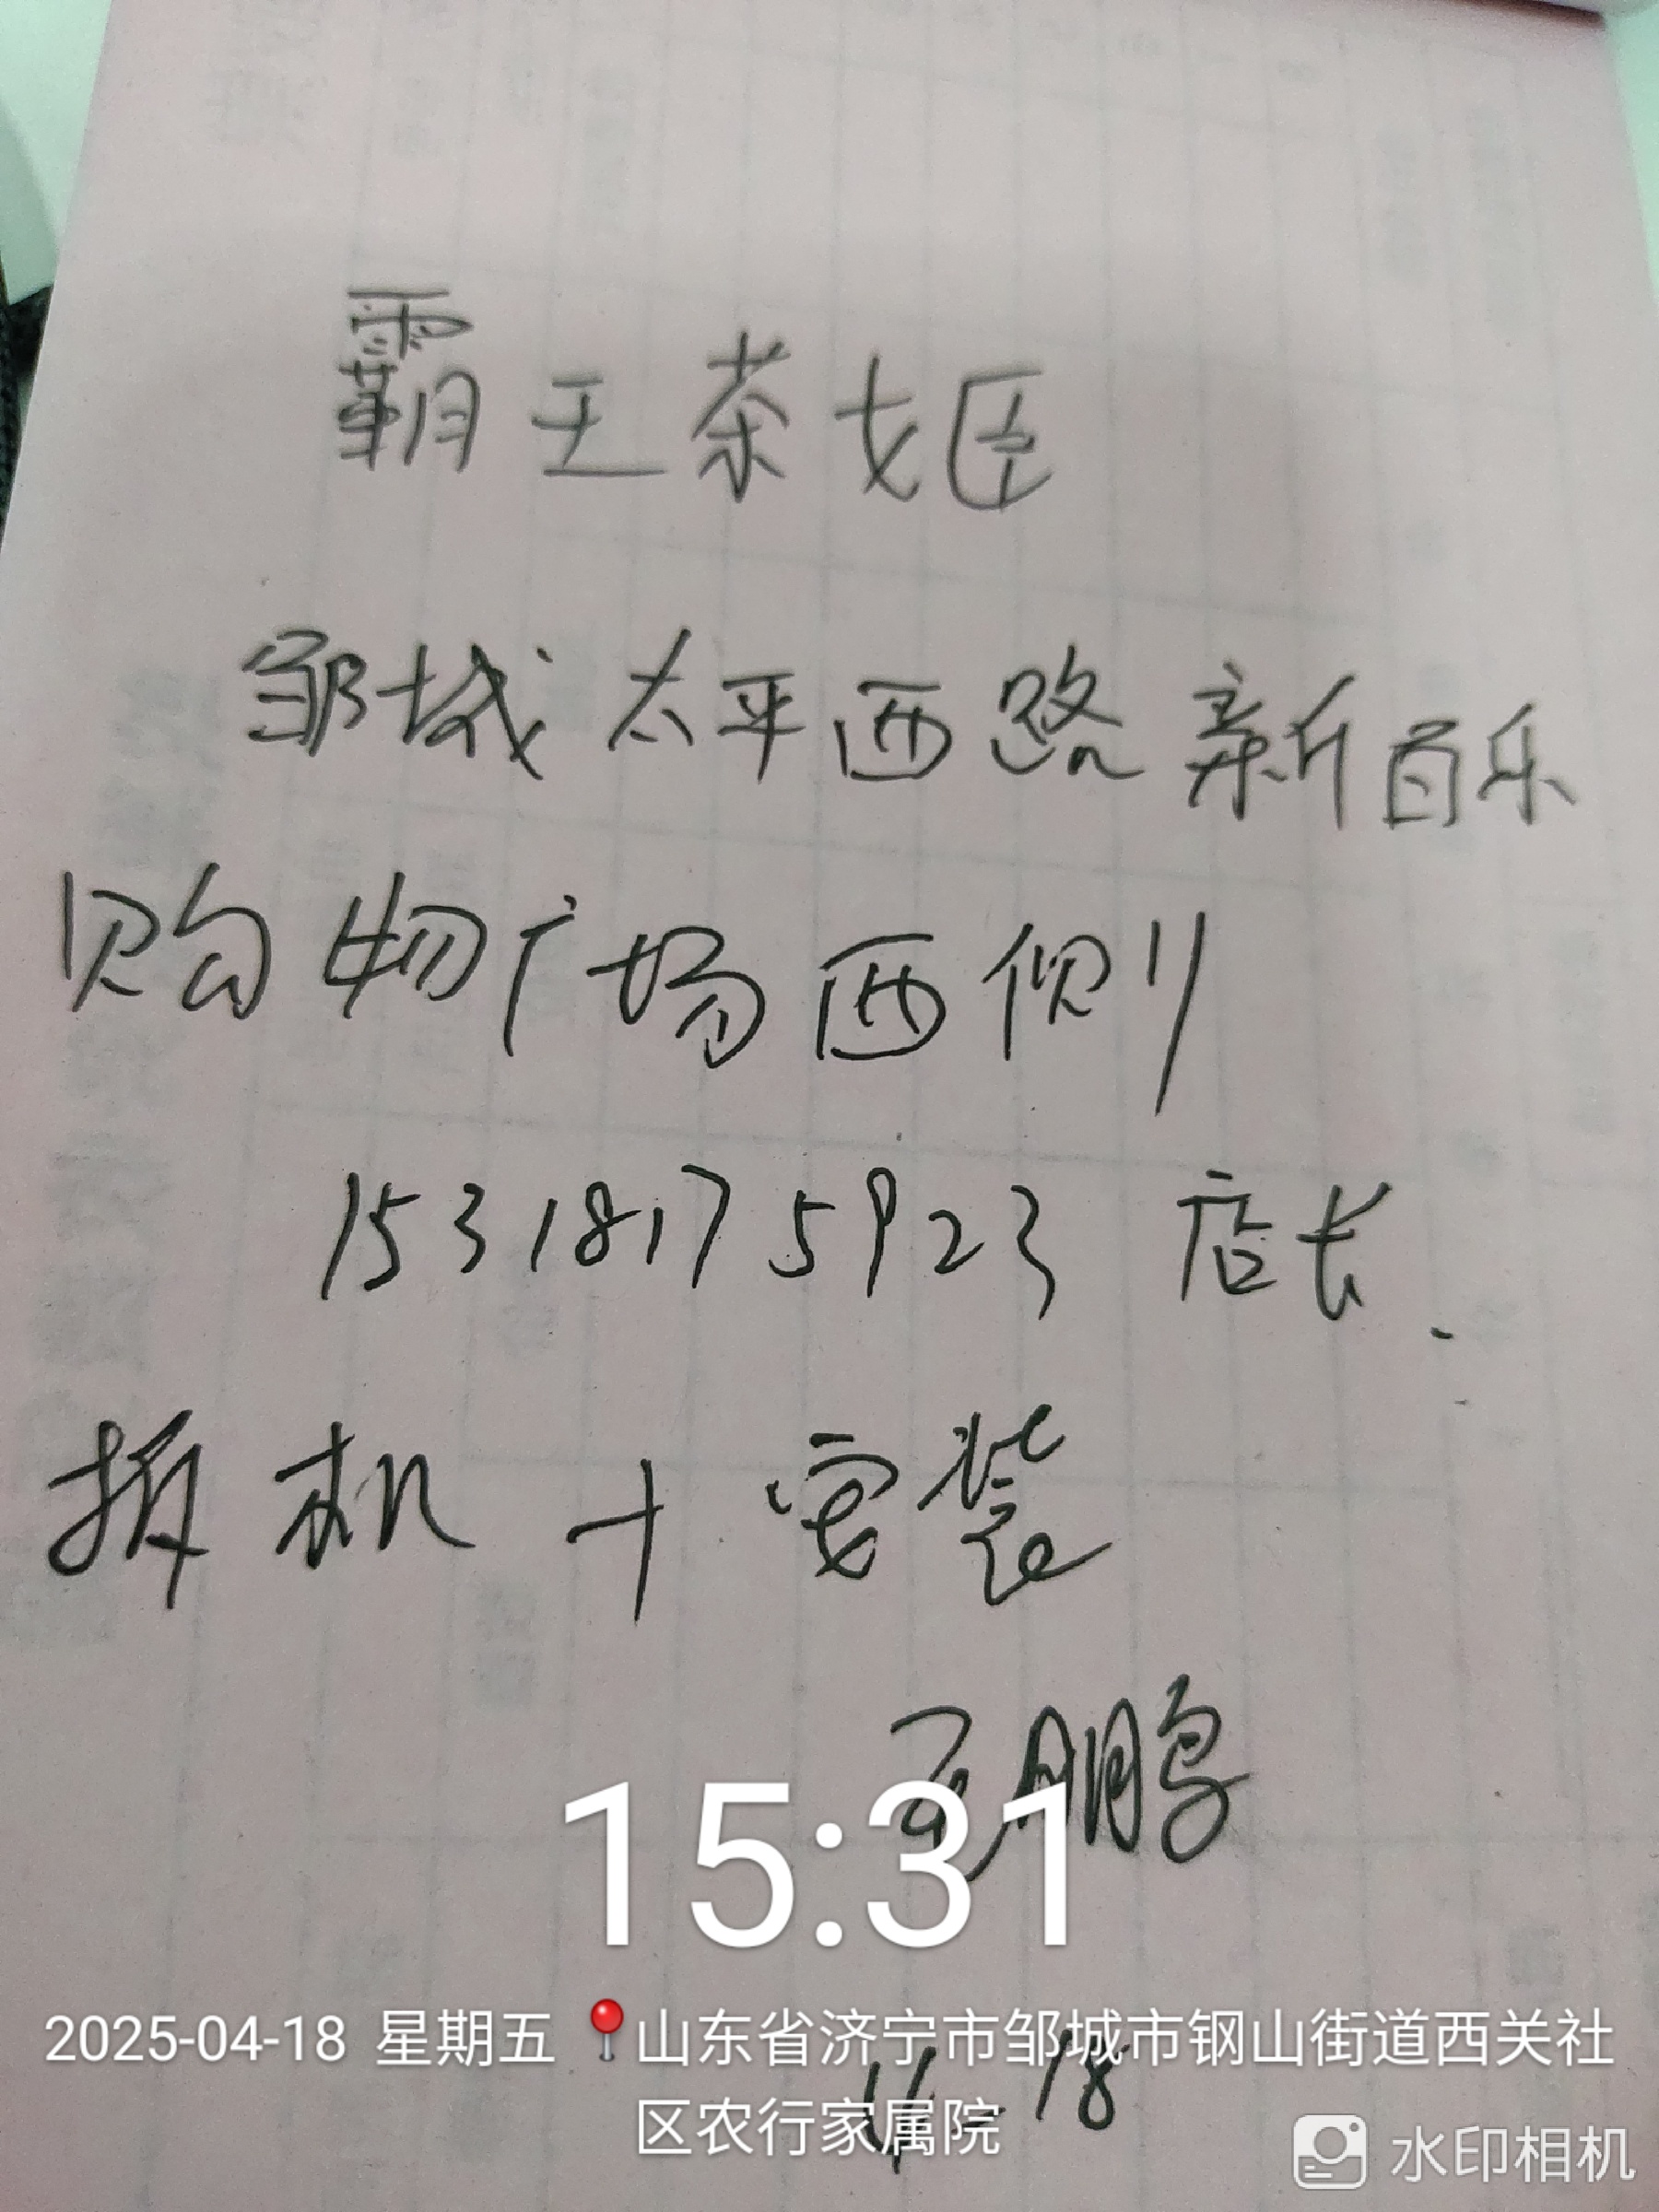 霸王茶姬
邹城太平西路新百乐
购物广场西侧
15318175923 店长
拆机+安装
王鹏
15:31
2025-04-18 星期五 山东省济宁市邹城市钢山街道西关社
区农行家属院
4-18
水印相机